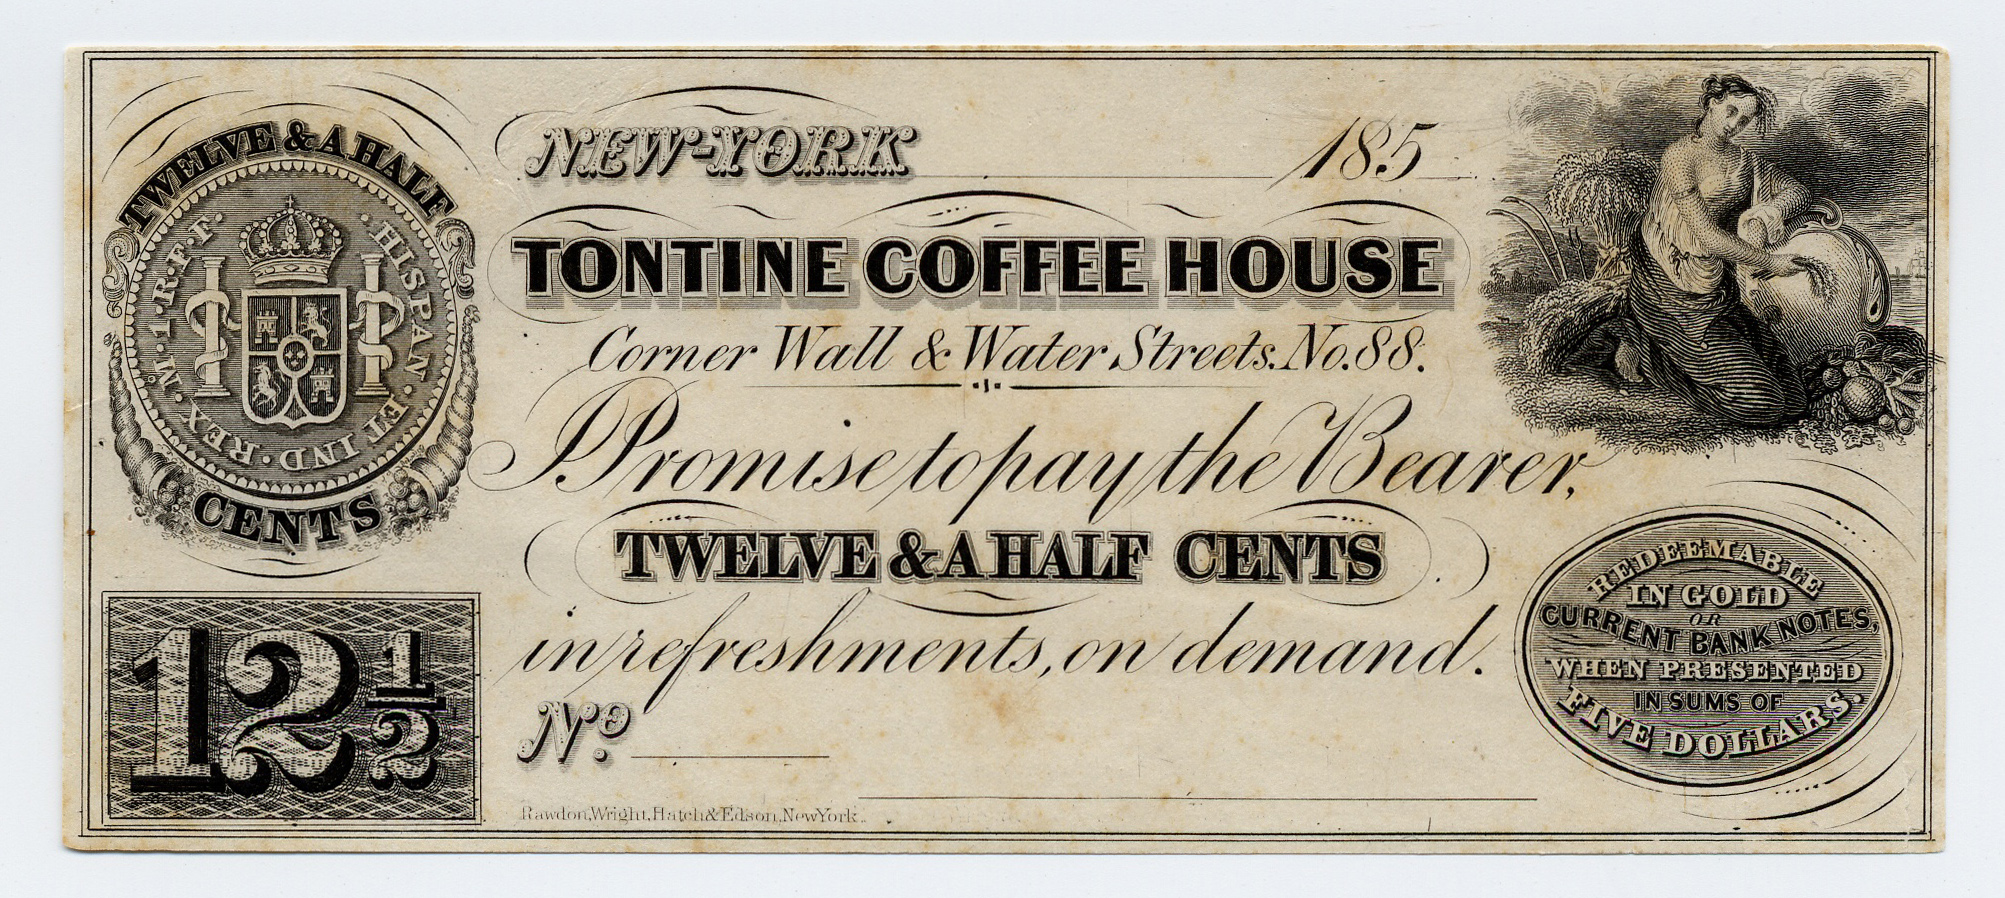 TWELVE & A HALF
HISPAN · ET IND · REX · M · I · R · F · F ·
CENTS
12 1/2
NEW-YORK 185
TONTINE COFFEE HOUSE
Corner Wall & Water Streets. No. 88.
I Promise to pay the Bearer,
TWELVE & A HALF CENTS
in refreshments, on demand.
No.
Rawdon, Wright, Hatch & Edson, New York.
REDEEMABLE
IN GOLD
OR
CURRENT BANK NOTES,
WHEN PRESENTED
IN SUMS OF
FIVE DOLLARS.